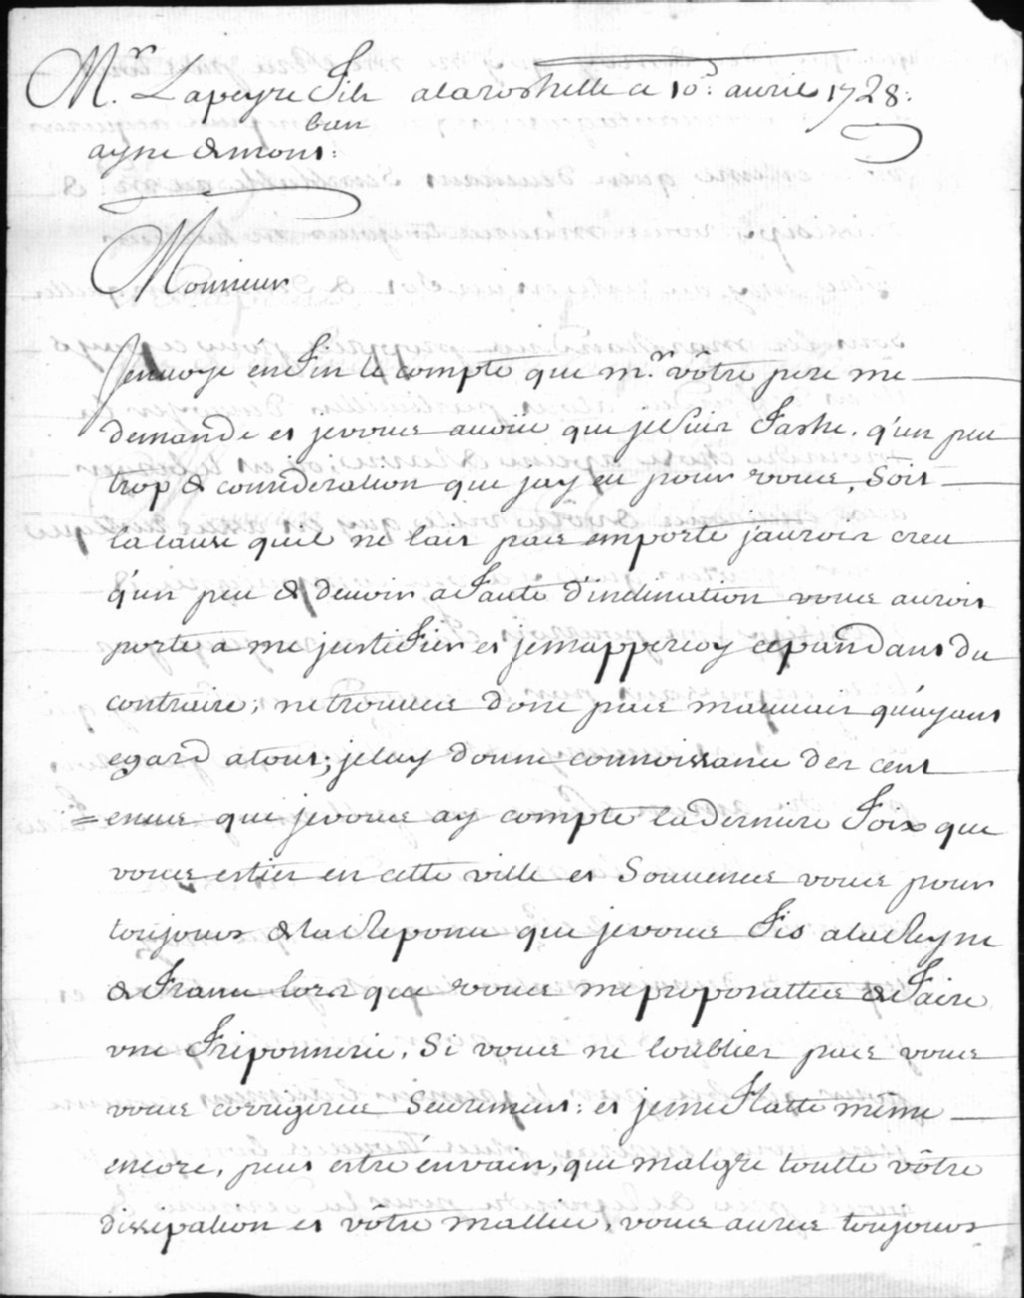 Mr. Lapeyre fils alaroshelle ce 10e. avril 1728:
ban
ayne de mont:
Monsieur
Jenvoye enfin le compte que mr. vôtre pere me
demande et jevous avoüe que jesuis fashe. q'un peu
trop de consideration que jay eu pour vous, soit
lacause quil ne lait pas emporté jaurois creu
q'un peu de devoir afaute d'inclination vous auroit
porté a me justifier et jemapperçoy cepandant du
contraire; netrouvés donc pas mauvais qu'ayant
egard atout; jeluy donne connoissance des cent
= ecus que jevous ay compté laderniere foix que
vous estiés en cette ville et souvenés vous pour
toujours delareponce que jevous fis alareyne
de france lors que vous meproposattes defaire
une friponnerie, si vous ne loubliés pas vous
vous corrigerés seurement: et jemeflatte même
encore, peut estre envain, que malgré toutte vôtre
dissipation et vôtre malice, vous aurés toujours